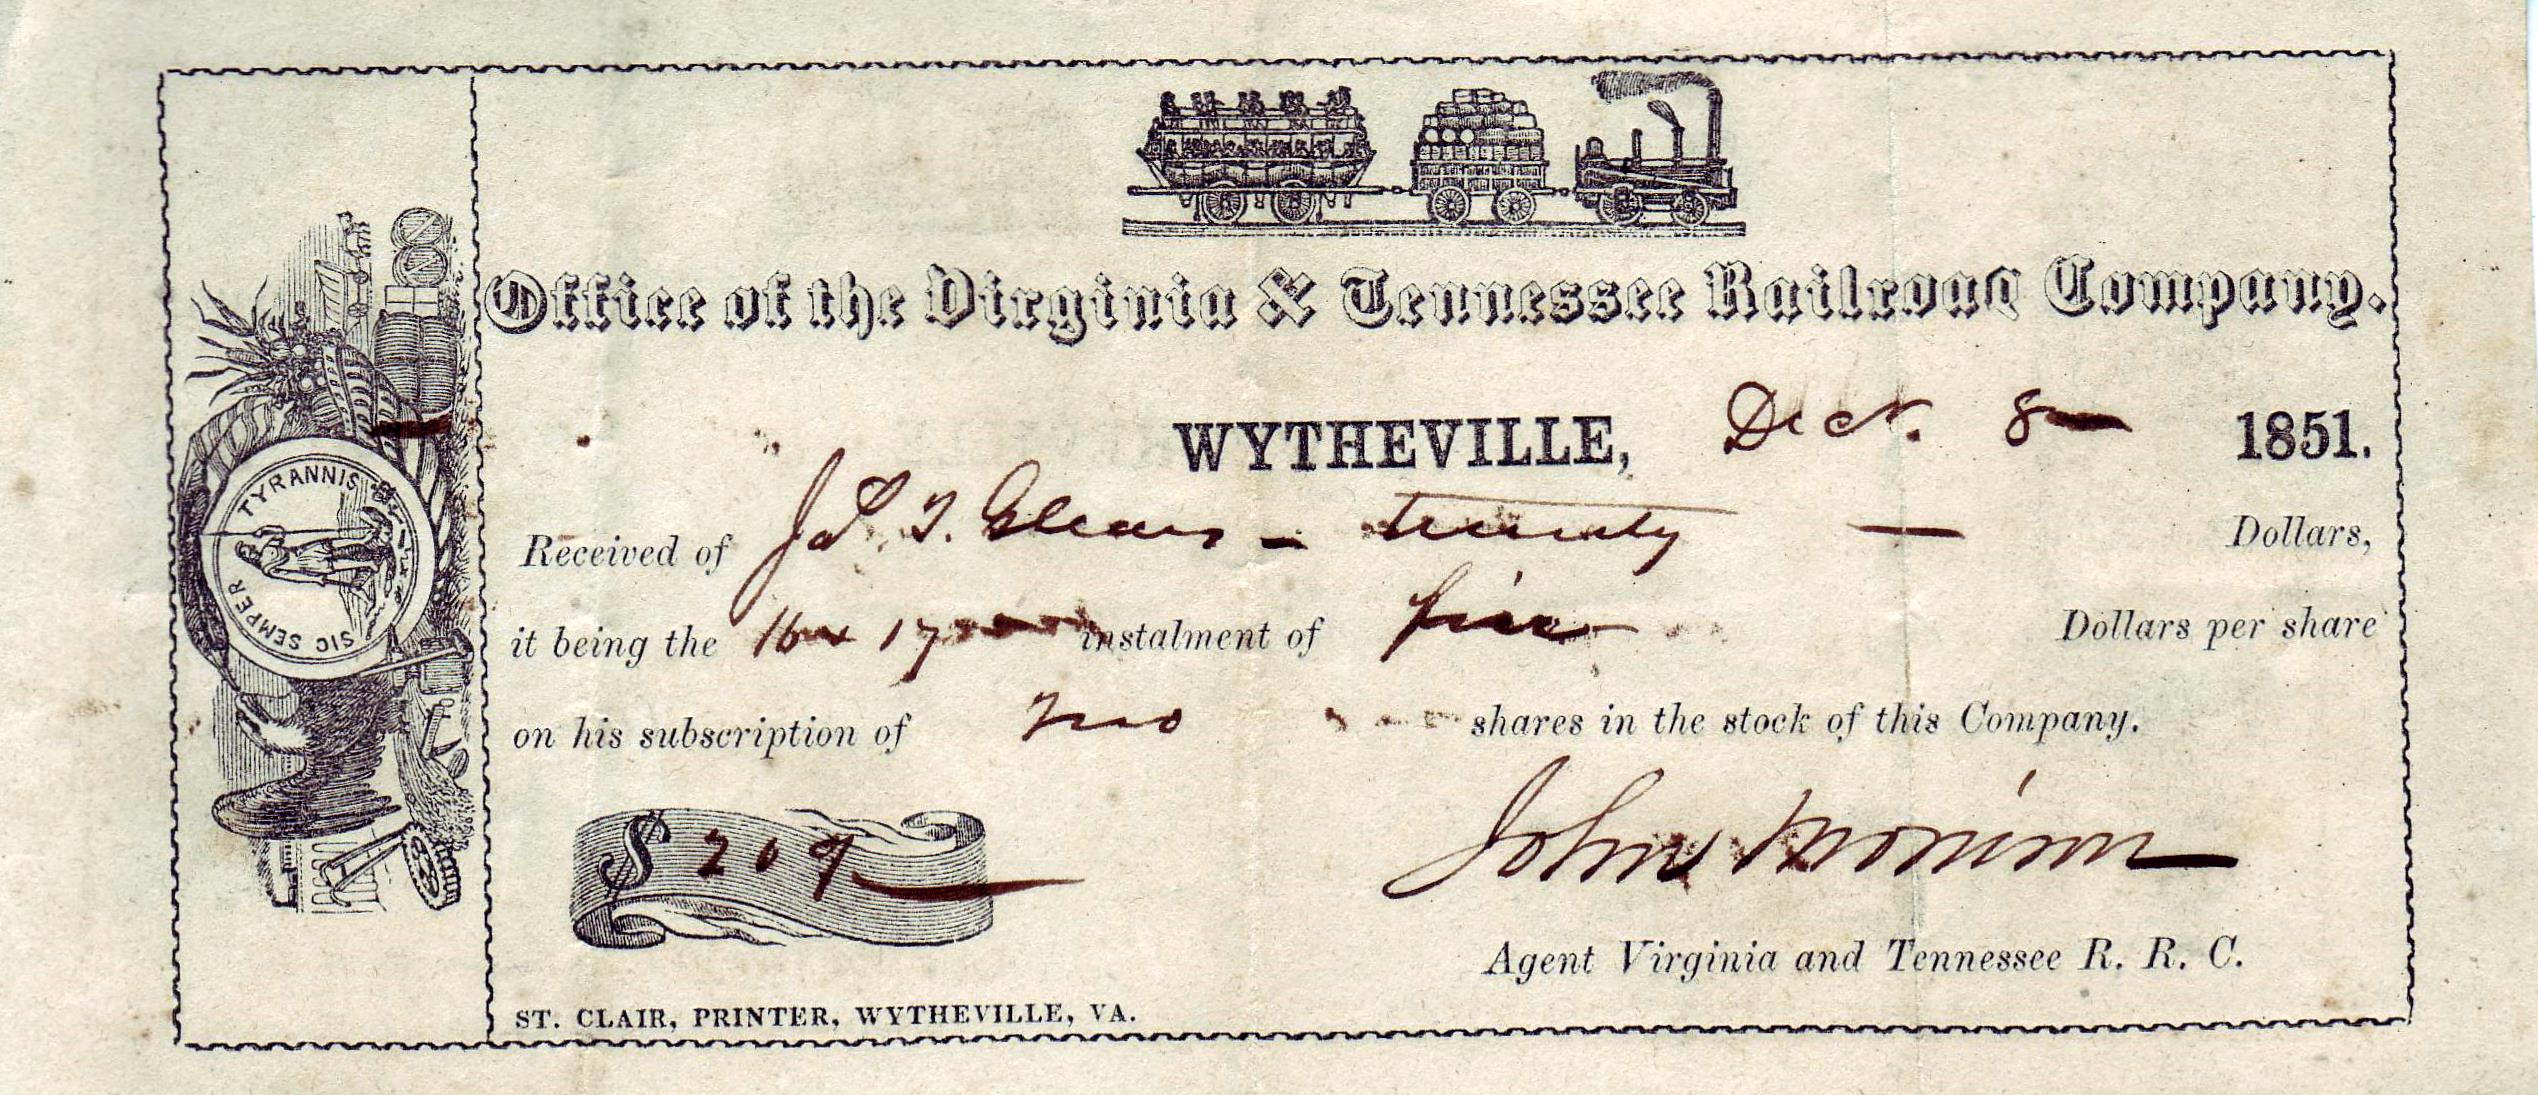 TYRANNIS
SIC SEMPER
Office of the Virginia & Tennessee Railroad Company.
WYTHEVILLE, Decr. 8 1851.
Received of Jas. T. - twenty — Dollars,
it being the 16 & 17 instalment of five Dollars per share
on his subscription of Two shares in the stock of this Company.
$ 20
John
Agent Virginia and Tennessee R. R. C.
ST. CLAIR, PRINTER, WYTHEVILLE, VA.